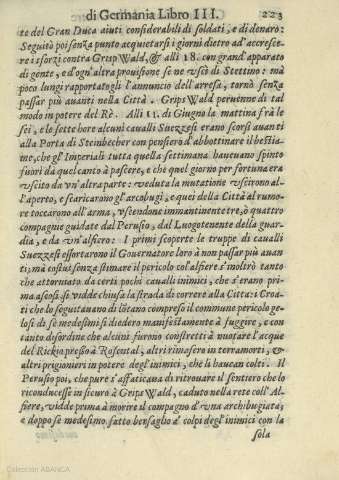 di Germania Libro III. 223
te del Gran Duca aiuti considerabili di soldati, e di denaro:
Seguitò poi senza punto acquietarsi i giorni dietro ad accresce-
re i sforzi contra Grips Wald, & alli 18. con grand'apparato
di gente, ed ogn'altra prouisione se ne vscì di Stettino: mà
poco lungi rapportatogli l'annuncio dell'arresa, tornò senza
passar più auanti nella Città. Grips Wald peruenne di tal
modo in potere del Rè. Alli 11. di Giugno la mattina frà le
sei, e le sette hore alcuni caualli Suezzesi erano scorsi auanti
alla Porta di Steinbecher con pensiero d'abbottinare il bestia-
me, che gl'Imperiali tutta quella settimana haueuano spinto
fuori da quel canto à pascere, e che quel giorno per fortuna era
vscito da vn'altra parte: veduta la mutatione vscirono al-
l'aperto, e scaricarono gl'arcobugi, e quei della Città al rumo-
re toccarono all'arma, vscendone immantinente trè, ò quattro
compagnie guidate dal Perusio, dal Luogotenente della guar-
dia, e da vn'alfiero: I primi scoperte le truppe di caualli
Suezzesi essortarono il Gouernatore loro à non passar più auan-
ti; mà costui senza stimare il pericolo col'alfiere s'inoltrò tanto
che attorniato da certi pochi caualli inimici, che s'erano pri-
ma ascosi, se vidde chiusa la strada di correre alla Città: i Croa-
ti che lo seguitauano di lōtano compreso il commune pericolo ge-
losi di se medesimi si diedero manifestamente à fuggire, e con
tanto disordine che alcuni furono constretti à nuotare l'acque
del Rickio presso à Rosental, altri rimasero in terra morti, &
altri prigionieri in potere degl'inimici, che li haueuan colti. Il
Perusio poi, che pure s'affaticana di ritrouare il sentiero che lo
riconducesse in sicuro à Grips Wald, caduto nella rete coll'Al-
fiere, vidde prima à morire il compagno d'vna archibugiata;
e doppo se medesimo fatto bersaglio a' colpi degl'inimici con la
sola
Colección ABANCA